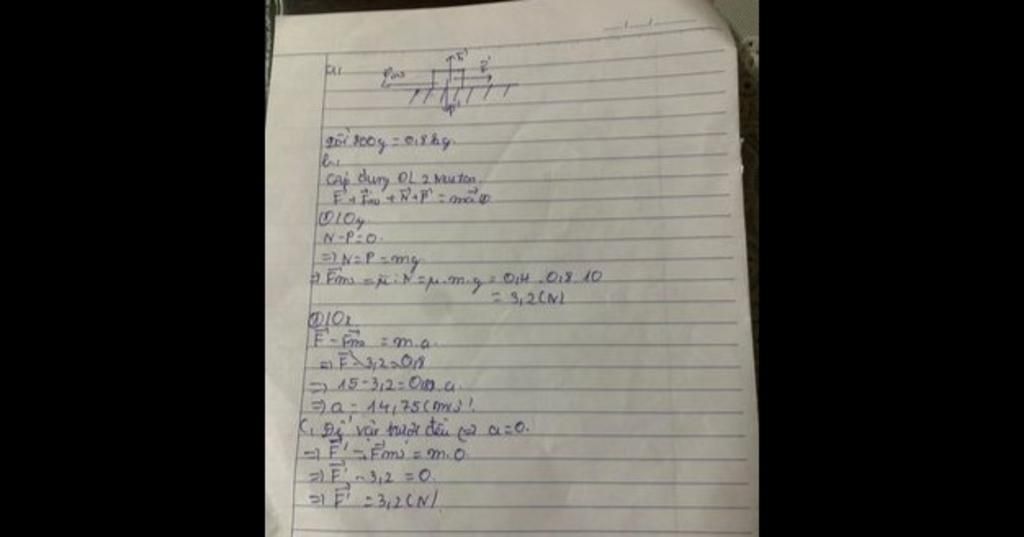 a,
Fms N F
P
Đổi 800g = 0,8kg.
b,
Áp dụng ĐL 2 Newton.
F + Fms + N + P = ma ①
①/Oy
N - P = 0.
=> N = P = mg
=> Fms = μ.N = μ.m.g = 0,4 . 0,8 . 10
= 3,2 (N)
①/Ox
F - Fms = m.a
=> F - 3,2 = 0,8
=> 15 - 3,2 = 0,8.a
=> a = 14,75 (m/s)
c, Để vật trượt đều => a = 0.
=> F' - Fms = m.0
=> F' - 3,2 = 0.
=> F' = 3,2 (N)